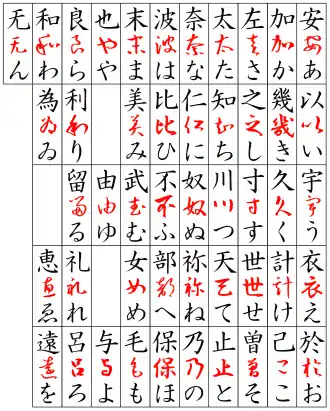 安安あ以以い宇宇う衣衣え於於お
加加か幾幾き久久く計計け己己こ
左左さ之之し寸寸す世世せ曽曽そ
太太た知知ち川川つ天天て止止と
奈奈な仁仁に奴奴ぬ祢祢ね乃乃の
波波は比比ひ不不ふ部部へ保保ほ
末末ま美美み武武む女女め毛毛も
也也や由由ゆ与与よ
良良ら利利り留留る礼礼れ呂呂ろ
和和わ為為ゐ恵恵ゑ遠遠を
无无ん